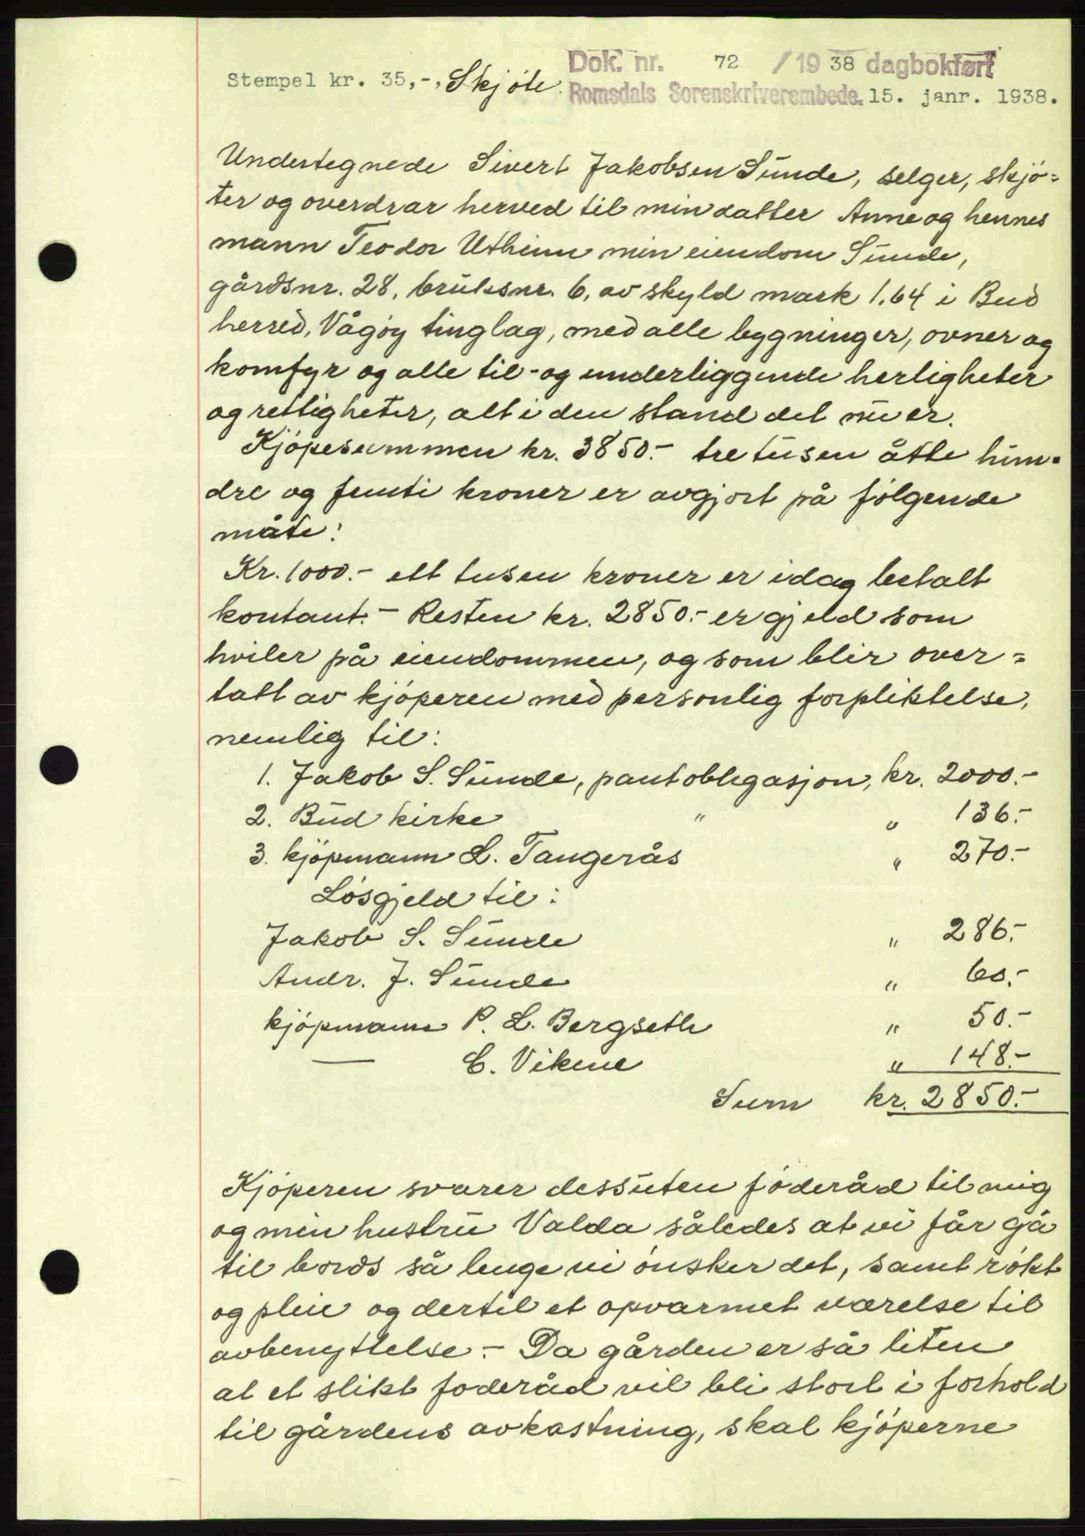 Stempel kr. 35,-, Skjøte. Dok. nr. 72 / 1938 dagbokført
Romsdals Sorenskriverembede. 15. janr. 1938.
Undertegnede Sivert Jakobsen Sunde, selger, skjø=
ter og overdrar herved til min datter Anne og hennes
mann Teodor Utheim min eiendom Sunde,
gårdsnr. 28, bruksnr. 6, av skyld mark 1.64 i Bud
herred, Vågøy tinglag, med alle bygninger, ovner og
komfyr og alle til- og underliggende herligheter
og rettigheter, alt i den stand det nu er.
Kjøpesummen kr. 3850.- tre tusen åtte hun=
dre og femti kroner er avgjort på følgende
måte:
Kr. 1000.- ett tusen kroner er idag betalt
kontant. - Resten kr. 2850.- er gjeld som
hviler på eiendommen, og som blir over=
tatt av kjøperen med personlig forpliktelse,
nemlig til:
1. Jakob S. Sunde, pantobligasjon, kr. 2000.-
2. Bud kirke " " 136.-
3. kjøpmann L. Tangerås " 270.-
Løsgjeld til:
Jakob S. Sunde " 286.-
Andr. J. Sunde " 60.-
kjøpmann P. L. Bergseth " 50.-
— C. Vikene " 148.-
Sum kr. 2850.-
Kjøperen svarer dessuten føderåd til mig
og min hustru Valda således at vi får gå
til bords så lenge vi ønsker det, samt røkt
og pleie og dertil et opvarmet værelse til
avbenyttelse. - Da gården er så liten
at et slikt føderåd vil bli stort i forhold
til gårdens avkastning, skal kjøperne